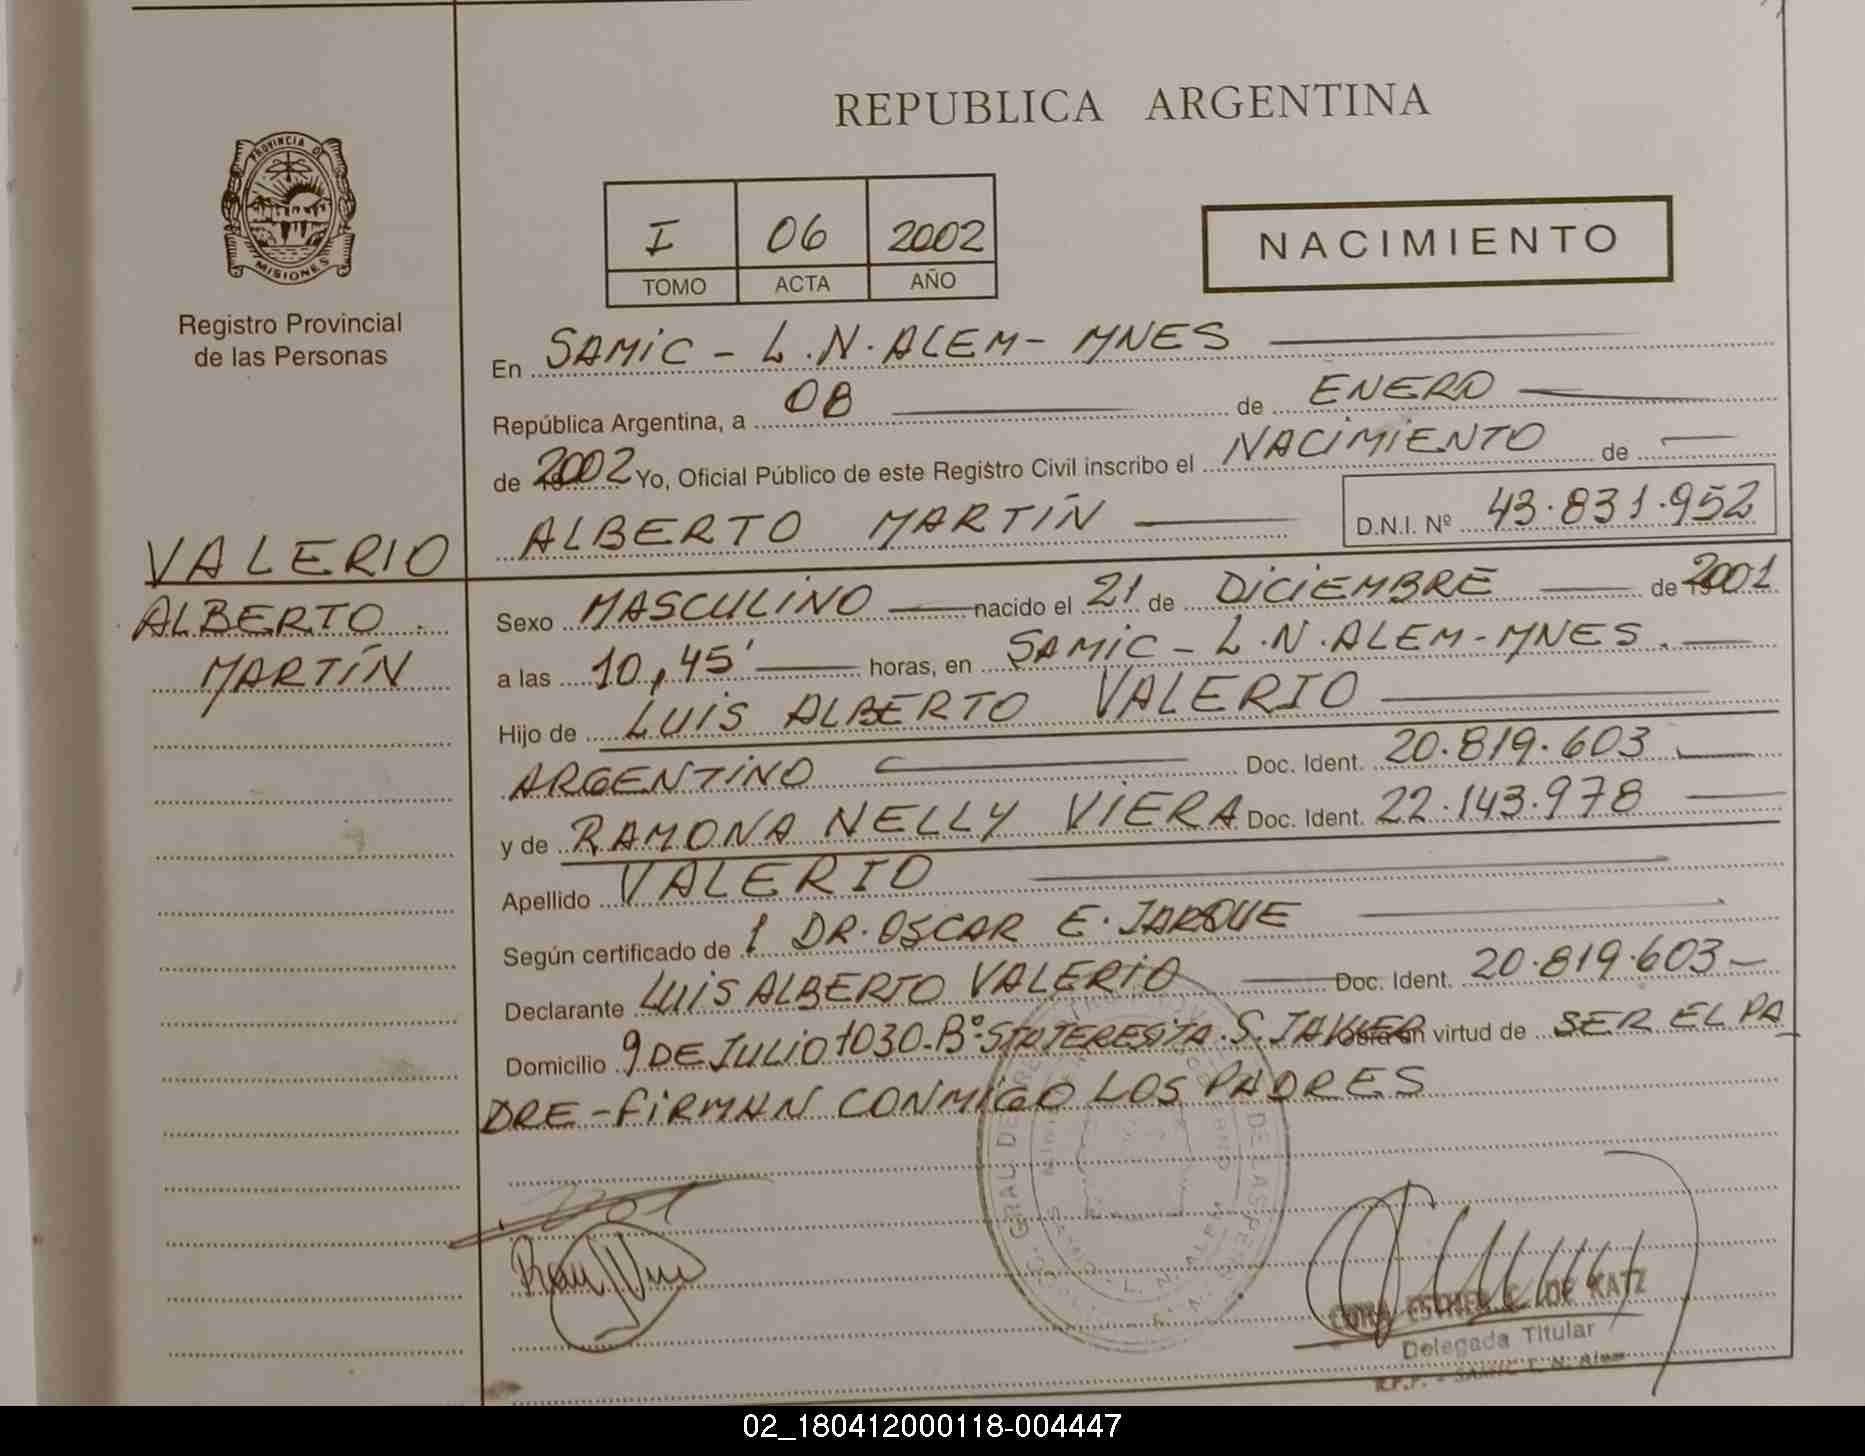 REPUBLICA ARGENTINA
PROVINCIA DE
MISIONES
Registro Provincial
de las Personas
I 06 2002
TOMO ACTA AÑO
NACIMIENTO
En SAMIC - L.N.ALEM - MNES
República Argentina, a 08 de ENERO
de 2002 Yo, Oficial Público de este Registro Civil inscribo el NACIMIENTO de
ALBERTO MARTÍN D.N.I. Nº 43.831.952
VALERIO
ALBERTO
MARTÍN
Sexo MASCULINO nacido el 21 de DICIEMBRE de 2001
a las 10,45' horas, en SAMIC - L.N.ALEM - MNES.
Hijo de LUIS ALBERTO VALERIO
ARGENTINO Doc. Ident. 20.819.603
y de RAMONA NELLY VIERA Doc. Ident. 22.143.978
Apellido VALERIO
Según certificado de DR. OSCAR E. JARQUE
Declarante LUIS ALBERTO VALERIO Doc. Ident. 20.819.603
Domicilio 9 DE JULIO 1030-Bº STA TERESITA. S. JAVIER Obra en virtud de SER EL PA
DRE - FIRMAN CONMIGO LOS PADRES
ESTHER C. DE KATZ
Delegada Titular
R.P.P. - SAMIC L. N. Alem
02_180412000118-004447